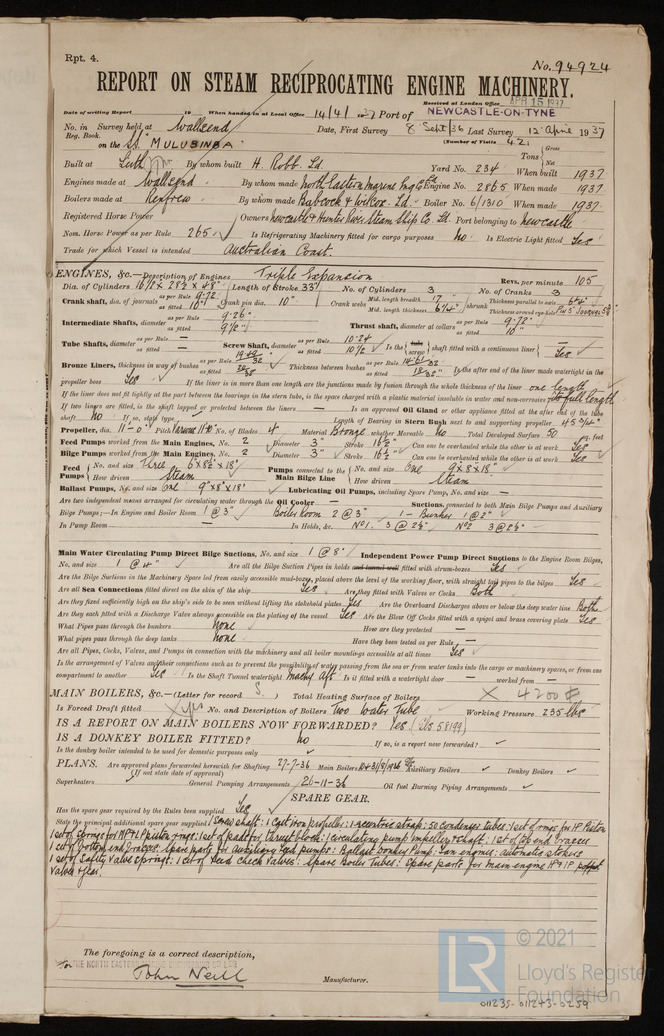 Rpt. 4.
No. 94924
REPORT ON STEAM RECIPROCATING ENGINE MACHINERY.
Received at London Office APR 15 1937
Date of writing Report 19 When handed in at Local Office 14/4/1937 Port of NEWCASTLE-ON-TYNE
No. in Survey held at Wallsend Date, First Survey 8 Sept/36 Last Survey 12 April 1937
Reg. Book.
(Number of Visits 42)
on the SS. MULUBINBA
Tons Gross Net
Built at Leith By whom built H. Robb. Ld. Yard No. 234 When built 1937
Engines made at Wallsend By whom made North Eastern Marine Eng Co Ld Engine No. 2865 When made 1937
Boilers made at Renfrew By whom made Babcock & Wilcox. Ld. Boiler No. 6/1310 When made 1937
Registered Horse Power Owners Newcastle & Hunter River Steam Ship Co. Ld. Port belonging to Newcastle
Nom. Horse Power as per Rule 265 Is Refrigerating Machinery fitted for cargo purposes No Is Electric Light fitted Yes
Trade for which Vessel is intended Australian Coast.
ENGINES, &c.—Description of Engines Triple Expansion Revs. per minute 105
Dia. of Cylinders 16½ x 28½ x 48" Length of Stroke 33" No. of Cylinders 3 No. of Cranks 3
Crank shaft, dia. of journals as per Rule 9.72 as fitted 10" Crank pin dia. 10" Crank webs Mid. length breadth 17" Mid. length thickness 6¼" shrunk Thickness parallel to axis 6¼" Thickness around eye-hole
Intermediate Shafts, diameter as per Rule 9.26" as fitted 9½" Thrust shaft, diameter at collars as per Rule 9.72" as fitted 10"
Tube Shafts, diameter as per Rule — as fitted — Screw Shaft, diameter as per Rule 10.24 as fitted 10½ Is the tube screw shaft fitted with a continuous liner Yes
Bronze Liners, thickness in way of bushes as per Rule as fitted Thickness between bushes as per Rule as fitted Is the after end of the liner made watertight in the
propeller boss Yes If the liner is in more than one length are the junctions made by fusion through the whole length of the liner one length
If the liner does not fit tightly at the part between the bearings in the stern tube, is the space charged with a plastic material insoluble in water and non-corrosive full length
If two liners are fitted, is the shaft lapped or protected between the liners — Is an approved Oil Gland or other appliance fitted at the after end of the tube
shaft No If so, state type Length of Bearing in Stern Bush next to and supporting propeller 45¾"
Propeller, dia. 11-0" Pitch No. of Blades 4 Material Bronze whether Moveable No Total Developed Surface 50 sq. feet
Feed Pumps worked from the Main Engines, No. 2 Diameter 3" Stroke 16½" Can one be overhauled while the other is at work Yes
Bilge Pumps worked from the Main Engines, No. 2 Diameter 3" Stroke 16½" Can one be overhauled while the other is at work Yes
Feed Pumps No. and size Three 6 x 8½ x 18" How driven Steam Pumps connected to the Main Bilge Line No. and size One 9 x 8 x 18" How driven Steam
Ballast Pumps, No. and size One 9" x 8" x 18" Lubricating Oil Pumps, including Spare Pump, No. and size —
Are two independent means arranged for circulating water through the Oil Cooler — Suctions, connected to both Main Bilge Pumps and Auxiliary
Bilge Pumps;—In Engine and Boiler Room 1 @ 3" Boiler Room 2 @ 3" 1 - Bunker 1 @ 2"
In Pump Room — In Holds, &c. No 1. 3 @ 2½" No 2 3 @ 2½"
Main Water Circulating Pump Direct Bilge Suctions, No. and size 1 @ 8" Independent Power Pump Direct Suctions to the Engine Room Bilges,
No. and size 1 @ 4" Are all the Bilge Suction Pipes in holds and tunnel well fitted with strum-boxes Yes
Are the Bilge Suctions in the Machinery Space led from easily accessible mud-boxes, placed above the level of the working floor, with straight tail pipes to the bilges Yes
Are all Sea Connections fitted direct on the skin of the ship Yes Are they fitted with Valves or Cocks Both
Are they fixed sufficiently high on the ship's side to be seen without lifting the stokehold plates Yes Are the Overboard Discharges above or below the deep water line Both
Are they each fitted with a Discharge Valve always accessible on the plating of the vessel Yes Are the Blow Off Cocks fitted with a spigot and brass covering plate Yes
What Pipes pass through the bunkers None How are they protected —
What pipes pass through the deep tanks None Have they been tested as per Rule —
Are all Pipes, Cocks, Valves, and Pumps in connection with the machinery and all boiler mountings accessible at all times Yes
Is the arrangement of Valves and their connections such as to prevent the possibility of water passing from the sea or from water tanks into the cargo or machinery spaces, or from one
compartment to another Yes Is the Shaft Tunnel watertight Machy aft Is it fitted with a watertight door — worked from —
MAIN BOILERS, &c.—(Letter for record S.) Total Heating Surface of Boilers 4200
Is Forced Draft fitted Yes No. and Description of Boilers Two Water Tube Working Pressure 235 lbs
IS A REPORT ON MAIN BOILERS NOW FORWARDED? Yes (Gls 58199)
IS A DONKEY BOILER FITTED? No If so, is a report now forwarded?
Is the donkey boiler intended to be used for domestic purposes only
PLANS. Are approved plans forwarded herewith for Shafting 27-7-36 Main Boilers Auxiliary Boilers Donkey Boilers
(If not state date of approval)
Superheaters General Pumping Arrangements 26-11-36 Oil fuel Burning Piping Arrangements
SPARE GEAR.
Has the spare gear required by the Rules been supplied Yes
State the principal additional spare gear supplied 1 Screw shaft: 1 Cast iron propeller: 1 eccentric strap: 50 condenser tubes: 1 set of rings for HP Piston
1 set of springs for MP & LP piston rings: 1 set of pads for thrust block: 1 circulating pump impeller & shaft: 1 set of top end brasses
1 set of bottom end brasses: Spare parts for auxiliary feed pumps: Ballast Donkey Pump: Fan engines: automatic stokers
1 set of Safety Valve springs: 1 set of Feed Check Valves: Spare Boiler Tubes: Spare parts for main engine HP & IP poppet
Valve gear.
The foregoing is a correct description,
For THE NORTH EASTERN MARINE ENGINEERING CO LTD
John Neill
Manufacturer.
LR
© 2021
Lloyd's Register
Foundation
011235-011243-0259